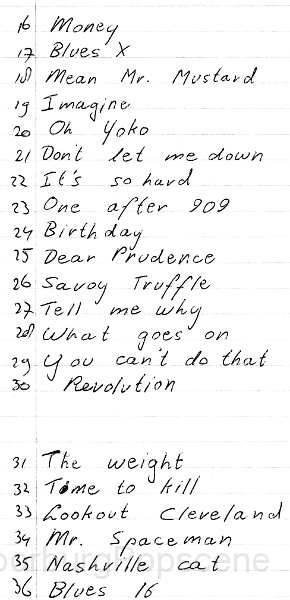 16 Money
17 Blues X
18 Mean Mr. Mustard
19 Imagine
20 Oh Yoko
21 Don't let me down
22 It's so hard
23 One after 909
24 Birthday
25 Dear Prudence
26 Savoy Truffle
27 Tell me why
28 What goes on
29 You can't do that
30 Revolution
31 The weight
32 Time to kill
33 Lookout Cleveland
34 Mr. Spaceman
35 Nashville cat
36 Blues 16